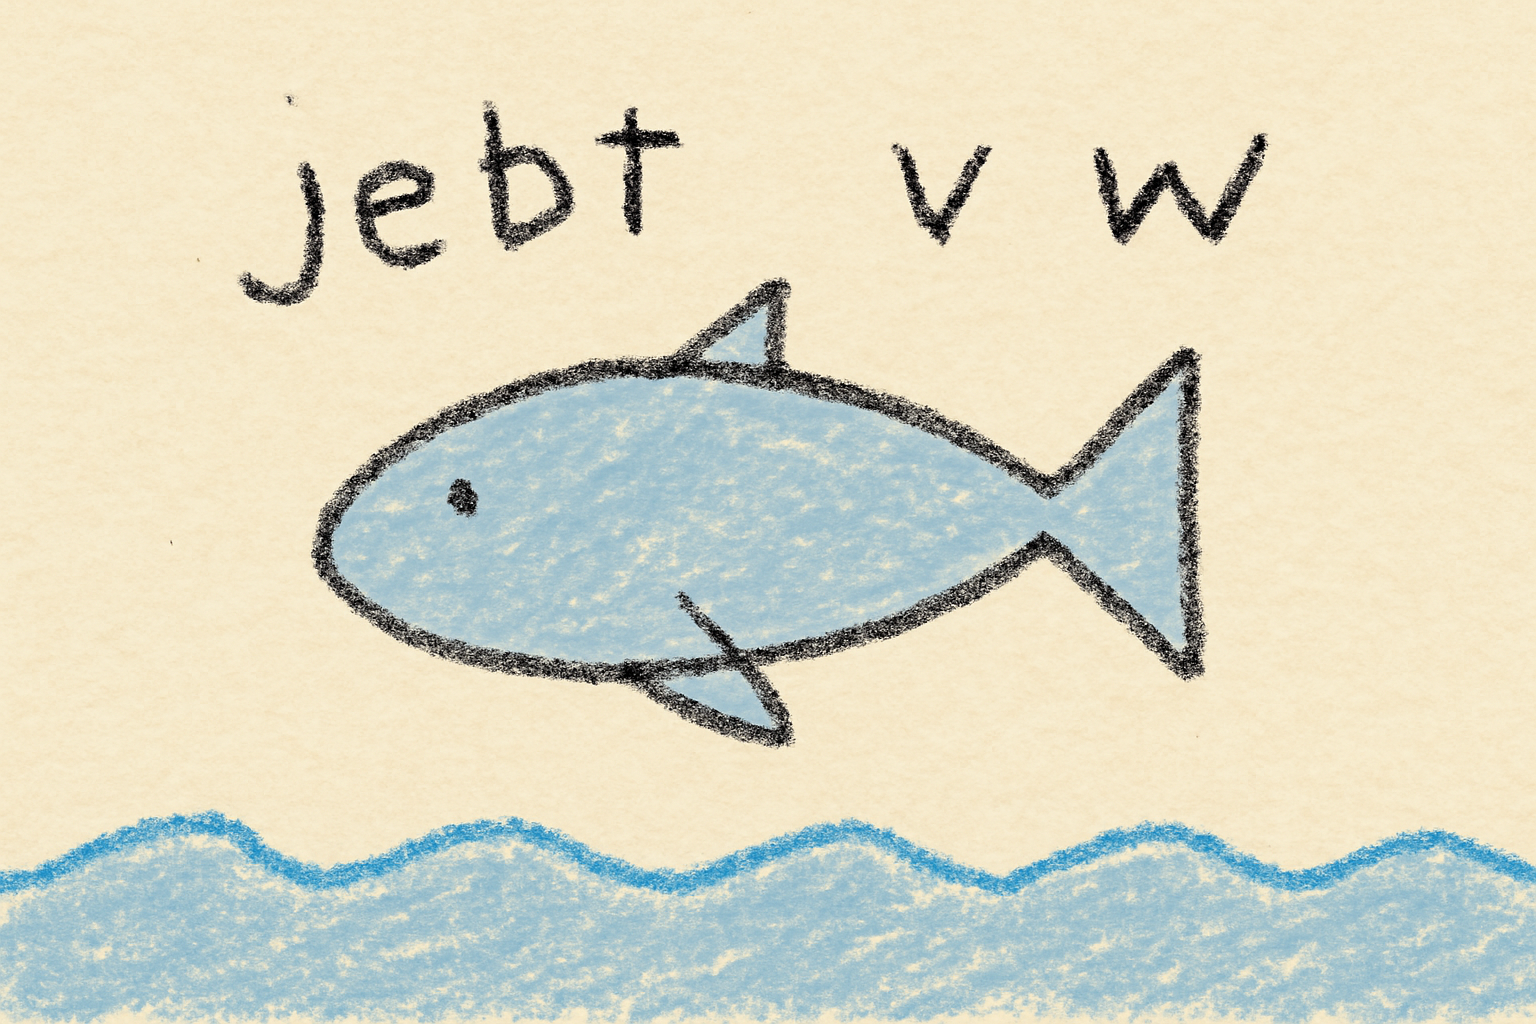 jebt v w